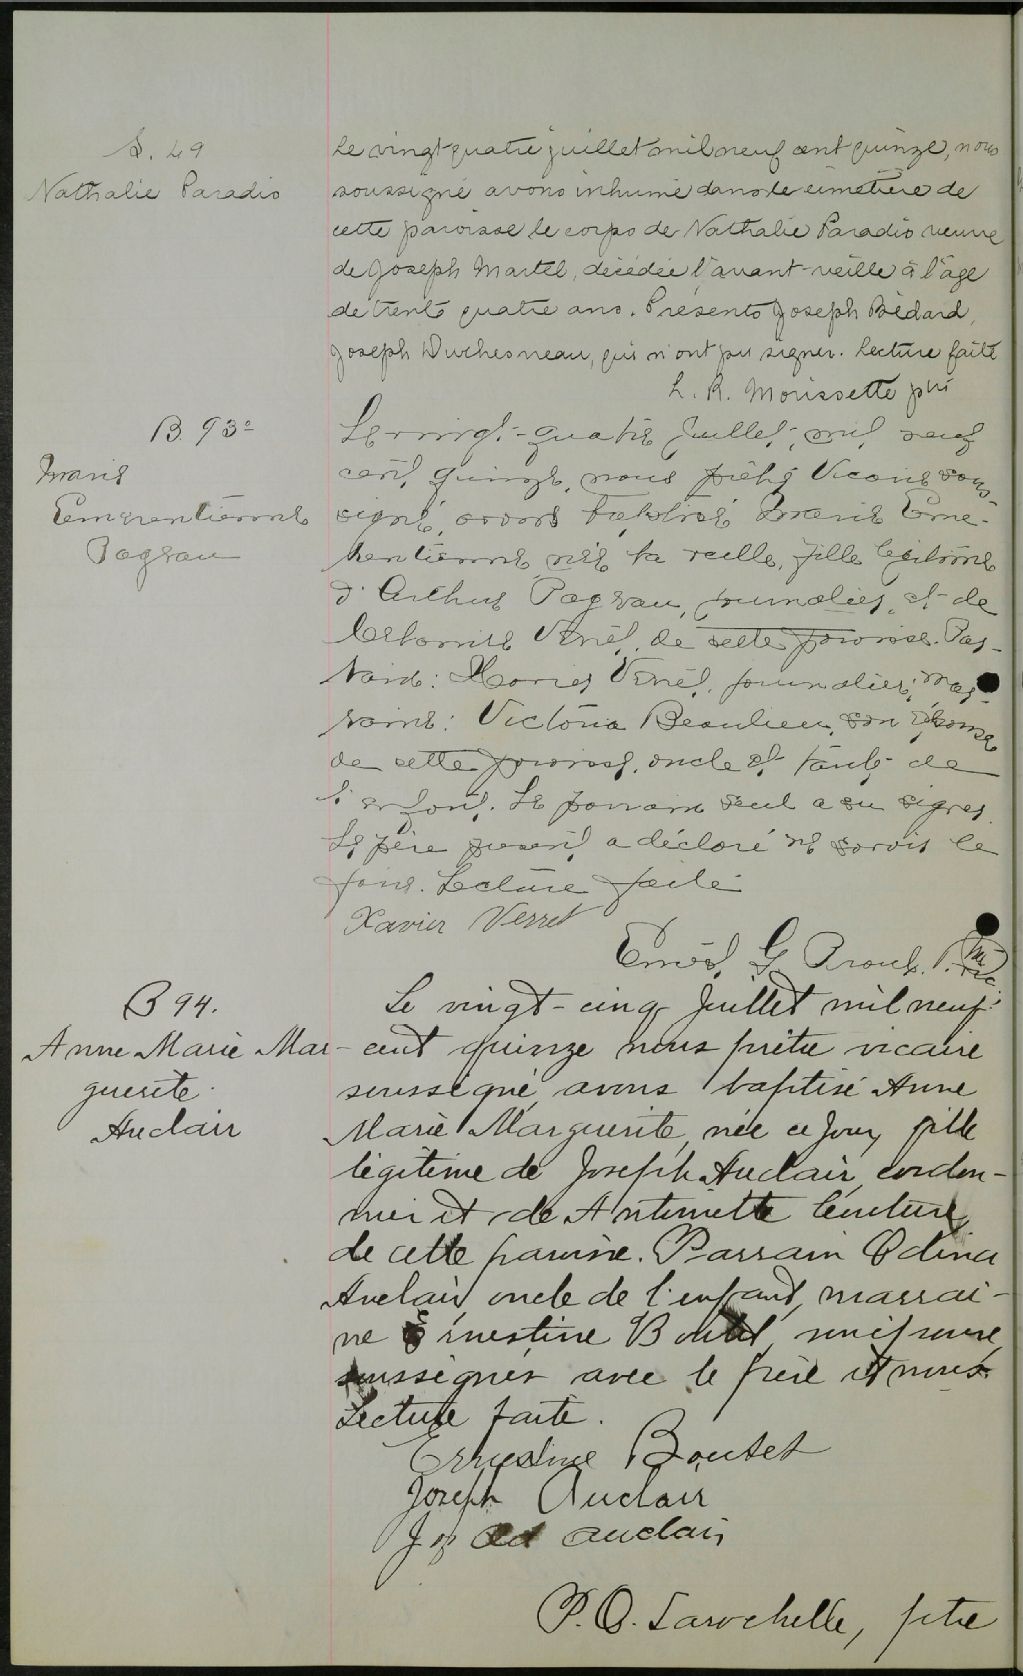 S. 49
Nathalie Paradis
Le vingt-quatre juillet mil neuf cent quinze, nous
soussigné avons inhumé dans le cimetière de
cette paroisse le corps de Nathalie Paradis veuve
de Joseph Martel, décédée l'avant-veille à l'âge
de trente quatre ans. Présents Joseph Bédard,
Joseph Duchesneau, qui n'ont pu signer. Lecture faite
L. R. Morissette ptre
B. 93e
Marie
Emerentienne
Pageau
Le vingt-quatre Juillet, mil neuf
cent quinze, nous prêtre Vicaire sous-
signé, avons baptisé Marie Eme-
rentienne née la veille, fille légitime
d'Arthur Pageau, journalier, et de
Verret, de cette paroisse. Par-
rain: Xavier Verret, journalier; mar-
raine: Victoria Beaulieu, son épouse
de cette paroisse, oncle et tante de
l'enfant. Le parrain seul a su signer.
Le père présent a déclaré ne savoir le
faire. Lecture faite
Xavier Verret
Ernest G. Proulx, Ptre
Vic.
B 94.
Anne Marie Mar-
guerite
Auclair
Le vingt-cinq Juillet mil neuf
cent quinze nous prêtre vicaire
soussigné, avons baptisé Anne
Marie Marguerite, née ce jour, fille
légitime de Joseph Auclair, cordon-
nier et de Antoinette
de cette paroisse. Parrain
Auclair, oncle de l'enfant, marrai-
ne Ernestine Boutet,
soussignés avec le père et nous.
Lecture faite.
Ernestine Boutet
Joseph Auclair
Jos Od auclair
P. O. Larochelle, ptre